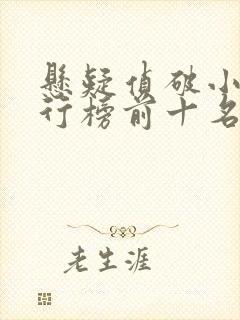 懸疑偵破小
行榜前十名
老生涯